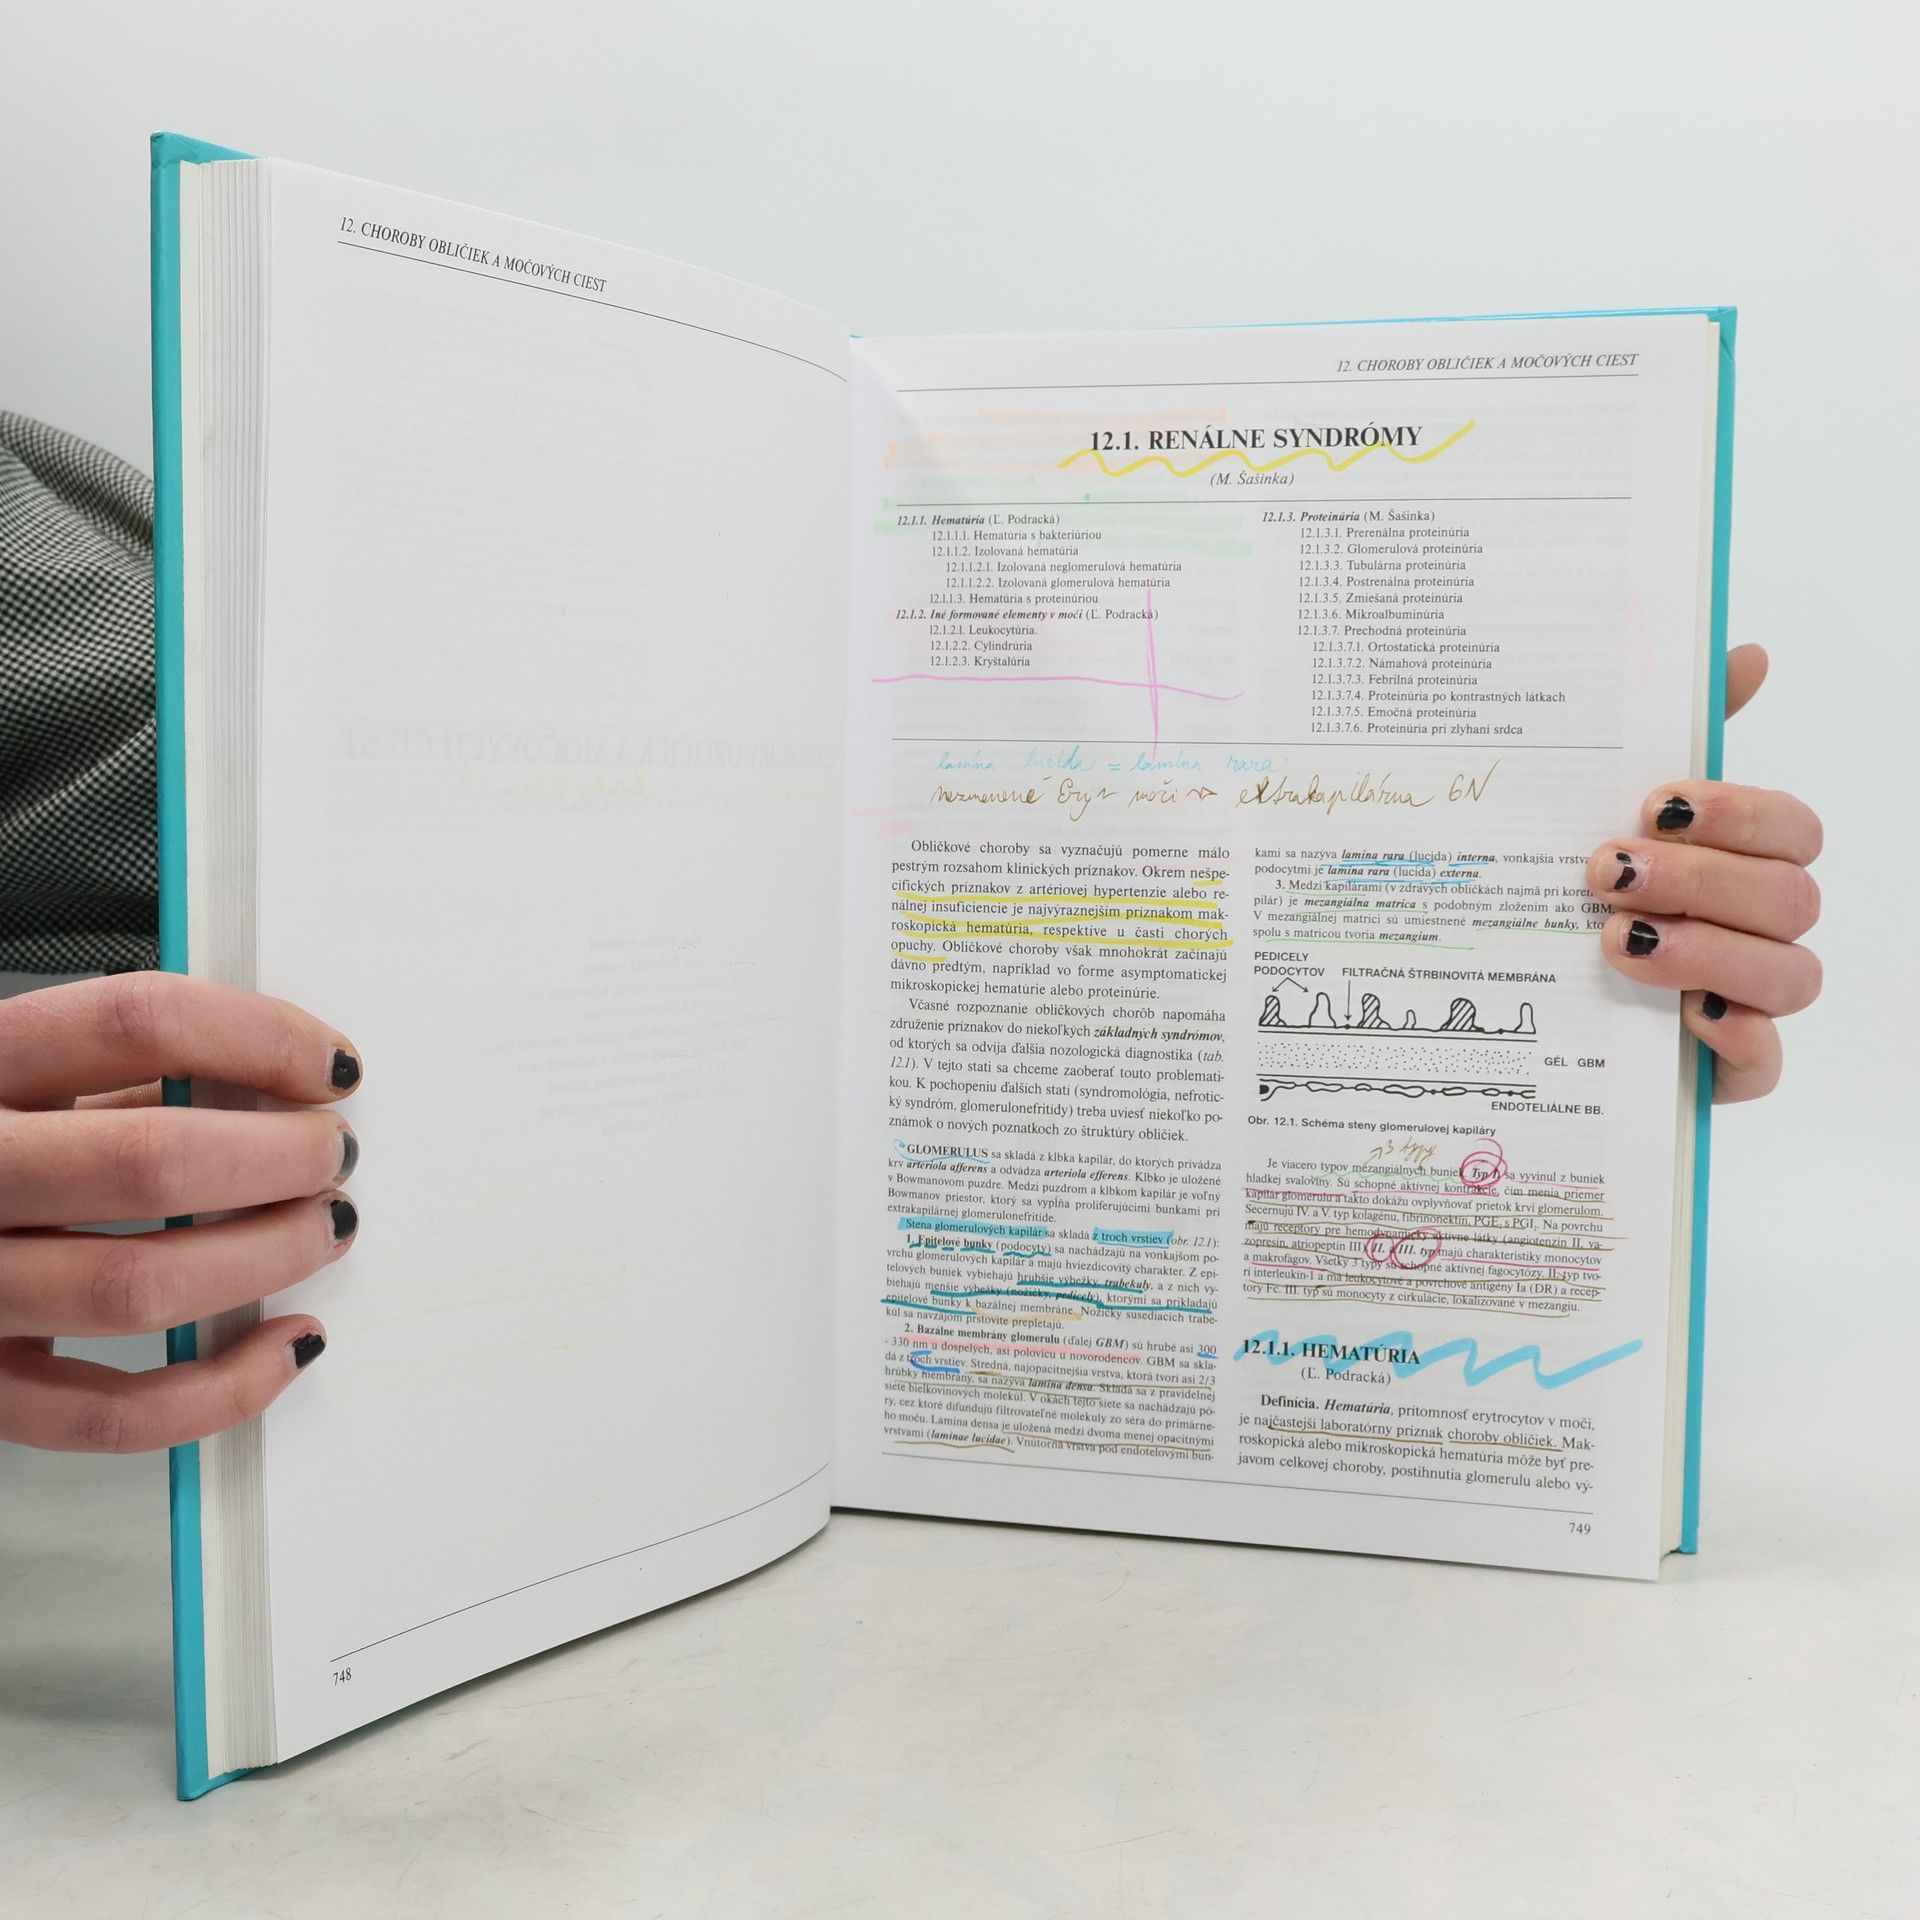 12. CHOROBY OBLIČIEK A MOČOVÝCH CIEST
748
12. CHOROBY OBLIČIEK A MOČOVÝCH CIEST
12.1. RENÁLNE SYNDRÓMY
(M. Šašinka)
12.1.1. Hematúria (Ľ. Podracká)
12.1.1.1. Hematúria s bakteriúriou
12.1.1.2. Izolovaná hematúria
12.1.1.2.1. Izolovaná neglomerulová hematúria
12.1.1.2.2. Izolovaná glomerulová hematúria
12.1.1.3. Hematúria s proteinúriou
12.1.2. Iné formované elementy v moči (Ľ. Podracká)
12.1.2.1. Leukocytúria.
12.1.2.2. Cylindrúria
12.1.2.3. Kryštalúria
12.1.3. Proteinúria (M. Šašinka)
12.1.3.1. Prerenálna proteinúria
12.1.3.2. Glomerulová proteinúria
12.1.3.3. Tubulárna proteinúria
12.1.3.4. Postrenálna proteinúria
12.1.3.5. Zmiešaná proteinúria
12.1.3.6. Mikroalbuminúria
12.1.3.7. Prechodná proteinúria
12.1.3.7.1. Ortostatická proteinúria
12.1.3.7.2. Námahová proteinúria
12.1.3.7.3. Febrilná proteinúria
12.1.3.7.4. Proteinúria po kontrastných látkach
12.1.3.7.5. Emočná proteinúria
12.1.3.7.6. Proteinúria pri zlyhaní srdca
lamina lucida = lamina rara
nezmenené Ery v moči → extrakapilárna GN
Obličkové choroby sa vyznačujú pomerne málo
pestrým rozsahom klinických príznakov. Okrem nešpe-
cifických príznakov z artériovej hypertenzie alebo re-
nálnej insuficiencie je najvýraznejším príznakom mak-
roskopická hematúria, respektíve u časti chorých
opuchy. Obličkové choroby však mnohokrát začínajú
dávno predtým, napríklad vo forme asymptomatickej
mikroskopickej hematúrie alebo proteinúrie.
Včasné rozpoznanie obličkových chorôb napomáha
združenie príznakov do niekoľkých základných syndrómov,
od ktorých sa odvíja ďalšia nozologická diagnostika (tab.
12.1). V tejto stati sa chceme zaoberať touto problemati-
kou. K pochopeniu ďalších statí (syndromológia, nefrotic-
ký syndróm, glomerulonefritídy) treba uviesť niekoľko po-
známok o nových poznatkoch zo štruktúry obličiek.
GLOMERULUS sa skladá z klbka kapilár, do ktorých privádza
krv arteriola afferens a odvádza arteriola efferens. Klbko je uložené
v Bowmanovom puzdre. Medzi puzdrom a klbkom kapilár je voľný
Bowmanov priestor, ktorý sa vypĺňa proliferujúcimi bunkami pri
extrakapilárnej glomerulonefritíde.
Stena glomerulových kapilár sa skladá z troch vrstiev (obr. 12.1):
1. Epitelové bunky (podocyty) sa nachádzajú na vonkajšom po-
vrchu glomerulových kapilár a majú hviezdicovitý charakter. Z epi-
telových buniek vybiehajú hrubšie výbežky, trabekuly, a z nich vy-
biehajú menšie výbežky (nožičky, pedicely), ktorými sa prikladajú
epitelové bunky k bazálnej membráne. Nožičky susediacich trabe-
kúl sa navzájom prstovite prepletajú.
2. Bazálne membrány glomerulu (ďalej GBM) sú hrubé asi 300
- 330 nm u dospelých, asi polovicu u novorodencov. GBM sa skla-
dá z troch vrstiev. Stredná, najopacitnejšia vrstva, ktorá tvorí asi 2/3
hrúbky membrány, sa nazýva lamina densa. Skladá sa z pravidelnej
siete bielkovinových molekúl. V okách tejto siete sa nachádzajú pó-
ry, cez ktoré difundujú filtrovateľné molekuly zo séra do primárne-
ho moču. Lamina densa je uložená medzi dvoma menej opacitnými
vrstvami (laminae lucidae). Vnútorná vrstva pod endotelovými bun-
kami sa nazýva lamina rara (lucida) interna, vonkajšia vrstva
podocytmi je lamina rara (lucida) externa.
3. Medzi kapilárami (v zdravých obličkách najmä pri koreni
pilár) je mezangiálna matrica s podobným zložením ako GBM.
V mezangiálnej matrici sú umiestnené mezangiálne bunky, kto
spolu s matricou tvoria mezangium.
PEDICELY
PODOCYTOV FILTRAČNÁ ŠTRBINOVITÁ MEMBRÁNA
GÉL GBM
ENDOTELIÁLNE BB.
Obr. 12.1. Schéma steny glomerulovej kapiláry
3 typy
Je viacero typov mezangiálnych buniek. Typ I. sa vyvinul z buniek
hladkej svaloviny. Sú schopné aktívnej kontrakcie, čím menia priemer
kapilár glomerulu a takto dokážu ovplyvňovať prietok krvi glomerulom.
Secernujú IV. a V. typ kolagénu, fibrinonektin, PGE₂ s PGI₂. Na povrchu
majú receptory pre hemodynamicky aktívne látky (angiotenzín II, va-
zopresín, atriopeptín III). II. a III. typ majú charakteristiky monocytov
a makrofágov. Všetky 3 typy sú schopné aktívnej fagocytózy. II. typ tvo-
rí interleukín-1 a má leukocytové a povrchové antigény Ia (DR) a recep-
tory Fc. III. typ sú monocyty z cirkulácie, lokalizované v mezangiu.
12.1.1. HEMATÚRIA
(Ľ. Podracká)
Definícia. Hematúria, prítomnosť erytrocytov v moči,
je najčastejší laboratórny príznak choroby obličiek. Mak-
roskopická alebo mikroskopická hematúria môže byť pre-
javom celkovej choroby, postihnutia glomerulu alebo vý-
749